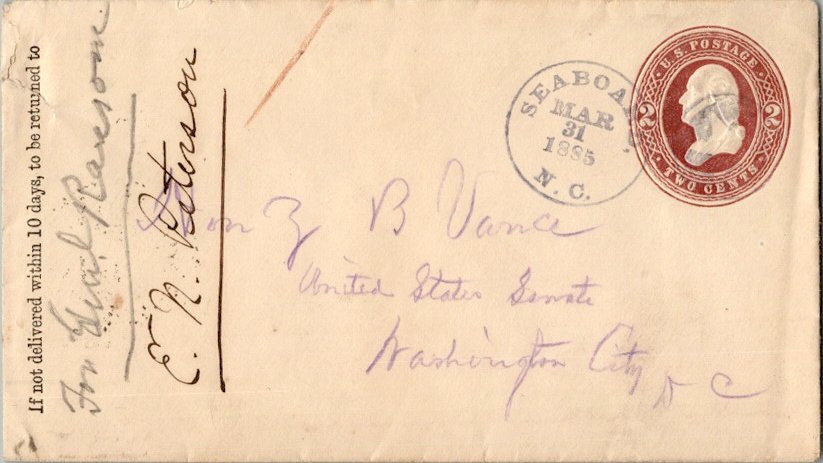 If not delivered within 10 days, to be returned to
For Genl Ransom
E. N. Peterson
SEABOARD,
MAR
31
1885
N. C.
U.S. POSTAGE
2 2
TWO CENTS
Hon Z B Vance
United States Senate
Washington City
D C